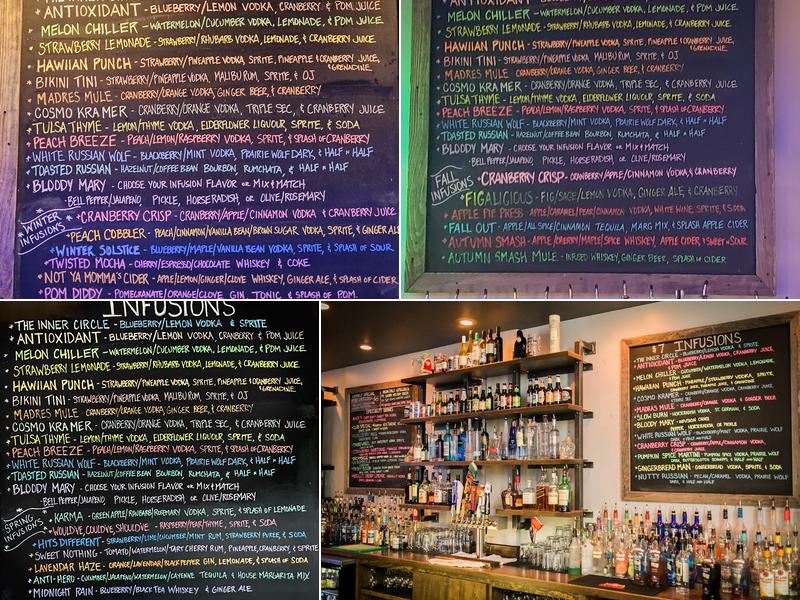 ANTIOXIDANT - BLUEBERRY/LEMON VODKA, CRANBERRY, & POM JUICE
MELON CHILLER - WATERMELON/CUCUMBER VODKA, LEMONADE, & POM JUICE.
STRAWBERRY LEMONADE - STRAWBERRY/RHUBARB VODKA, LEMONADE, & CRANBERRY JUICE.
HAWIIAN PUNCH - STRAWBERRY/PINEAPPLE VODKA, SPRITE, PINEAPPLE & CRANBERRY JUICE, & GRENADINE.
BIKINI TINI - STRAWBERRY/PINEAPPLE VODKA, MALIBU RUM, SPRITE, & OJ
MADRES MULE - CRANBERRY/ORANGE VODKA, GINGER BEER, & CRANBERRY
COSMO KRAMER - CRANBERRY/ORANGE VODKA, TRIPLE SEC, & CRANBERRY JUICE
TULSA THYME - LEMON/THYME VODKA, ELDERFLOWER LIQUOUR, SPRITE, & SODA
PEACH BREEZE - PEACH/LEMON/RASPBERRY VODKA, SPRITE, & SPLASH OF CRANBERRY
WHITE RUSSIAN WOLF - BLACKBERRY/MINT VODKA, PRAIRIE WOLF DARK, & HALF N HALF
TOASTED RUSSIAN - HAZELNUT/COFFEE BEAN BOURBON, RUMCHATA, & HALF N HALF
BLOODY MARY - CHOOSE YOUR INFUSION FLAVOR OR MIX & MATCH
BELL PEPPER/JALAPENO, PICKLE, HORSERADISH, OR OLIVE/ROSEMARY
WINTER INFUSIONS
CRANBERRY CRISP - CRANBERRY/APPLE/CINNAMON VODKA & CRANBERRY JUICE
PEACH COBBLER - PEACH/CINNAMON/VANILLA BEAN/BROWN SUGAR VODKA, SPRITE, & GINGER ALE
WINTER SOLSTICE - BLUEBERRY/MAPLE/VANILLA BEAN VODKA, SPRITE, & SPLASH OF SOUR
TWISTED MOCHA - CHERRY/ESPRESSO/CHOCOLATE WHISKEY & COKE
NOT YA MOMMA'S CIDER - APPLE/LEMON/GINGER/CLOVE WHISKEY, GINGER ALE, & SPLASH OF CIDER
POM DIDDY - POMEGRANATE/ORANGE/CLOVE GIN, TONIC & SPLASH OF POM.
MELON CHILLER - WATERMELON/CUCUMBER VODKA, LEMONADE, & POM JUICE.
STRAWBERRY LEMONADE - STRAWBERRY/RHUBARB VODKA, LEMONADE, & CRANBERRY JUICE
HAWIIAN PUNCH - STRAWBERRY/PINEAPPLE VODKA, SPRITE, PINEAPPLE & CRANBERRY JUICE, & GRENADINE.
BIKINI TINI - STRAWBERRY/PINEAPPLE VODKA, MALIBU RUM, SPRITE, & OJ
MADRES MULE - CRANBERRY/ORANGE VODKA, GINGER BEER, & CRANBERRY
COSMO KRAMER - CRANBERRY/ORANGE VODKA, TRIPLE SEC, & CRANBERRY JUICE
TULSA THYME - LEMON/THYME VODKA, ELDERFLOWER LIQUOUR, SPRITE, & SODA
PEACH BREEZE - PEACH/LEMON/RASPBERRY VODKA, SPRITE, & SPLASH OF CRANBERRY
WHITE RUSSIAN WOLF - BLACKBERRY/MINT VODKA, PRAIRIE WOLF DARK, & HALF N HALF
TOASTED RUSSIAN - HAZELNUT/COFFEE BEAN BOURBON, RUMCHATA, & HALF N HALF
BLOODY MARY - CHOOSE YOUR INFUSION FLAVOR OR MIX & MATCH
BELL PEPPER/JALAPENO, PICKLE, HORSERADISH, OR OLIVE/ROSEMARY
FALL INFUSIONS
CRANBERRY CRISP - CRANBERRY/APPLE/CINNAMON VODKA & CRANBERRY JUICE
FIGALICIOUS - FIG/SAGE/LEMON VODKA, GINGER ALE, & CRANBERRY
APPLE PIP PRESS - APPLE/CARAMEL/PEAR/CINNAMON VODKA, WHITE WINE, SPRITE, & SODA
FALL OUT - APPLE/ALL SPICE/CINNAMON TEQUILA, MARG MIX, & SPLASH APPLE CIDER
AUTUMN SMASH - APPLE/CHERRY/MAPLE/SPICE WHISKEY, APPLE CIDER & SWEET N SOUR
AUTUMN SMASH MULE - INFUSED WHISKEY, GINGER BEER, & SPLASH OF CIDER
INFUSIONS
THE INNER CIRCLE - BLUEBERRY/LEMON VODKA & SPRITE
ANTIOXIDANT - BLUEBERRY/LEMON VODKA, CRANBERRY, & POM JUICE
MELON CHILLER - WATERMELON/CUCUMBER VODKA, LEMONADE, & POM JUICE.
STRAWBERRY LEMONADE - STRAWBERRY/RHUBARB VODKA, LEMONADE, & CRANBERRY JUICE.
HAWIIAN PUNCH - STRAWBERRY/PINEAPPLE VODKA, SPRITE, PINEAPPLE & CRANBERRY JUICE, & GRENADINE.
BIKINI TINI - STRAWBERRY/PINEAPPLE VODKA, MALIBU RUM, SPRITE, & OJ
MADRES MULE - CRANBERRY/ORANGE VODKA, GINGER BEER, & CRANBERRY
COSMO KRAMER - CRANBERRY/ORANGE VODKA, TRIPLE SEC, & CRANBERRY JUICE.
TULSA THYME - LEMON/THYME VODKA, ELDERFLOWER LIQUOUR, SPRITE, & SODA
PEACH BREEZE - PEACH/LEMON/RASPBERRY VODKA, SPRITE, & SPLASH OF CRANBERRY
WHITE RUSSIAN WOLF - BLACKBERRY/MINT VODKA, PRAIRIE WOLF DARK, & HALF N HALF
TOASTED RUSSIAN - HAZELNUT/COFFEE BEAN BOURBON, RUMCHATA, & HALF N HALF
BLOODY MARY - CHOOSE YOUR INFUSION FLAVOR OR MIX & MATCH
BELL PEPPER/JALAPENO, PICKLE, HORSERADISH, OR OLIVE/ROSEMARY
SPRING INFUSIONS
KARMA - GREEN APPLE/RHUBARB/ROSEMARY VODKA, SPRITE, & SPLASH OF LEMONADE
WOULDVE, COULDVE, SHOULDVE - RASPBERRY/PEAR/THYME, SPRITE, & SODA
HITS DIFFERENT - STRAWBERRY/LIME/CUCUMBER/MINT RUM, STRAWBERRY PUREE, & SODA
SWEET NOTHING - TOMATO/WATERMELON/TART CHERRY RUM, PINEAPPLE, CRANBERRY, & SPRITE
LAVENDAR HAZE - ORANGE/LAVENDAR/BLACK PEPPER GIN, LEMONADE, & SPLASH OF SODA
ANTI-HERO - CUCUMBER/JALAPENO/WATERMELON/CAYENNE TEQUILA & HOUSE MARGARITA MIX
MIDNIGHT RAIN - BLUEBERRY/BLACK TEA WHISKEY & GINGER ALE.
$7 INFUSIONS
THE INNER CIRCLE - BLUEBERRY/LEMON VODKA & SPRITE
ANTIOXIDANT - BLUEBERRY/LEMON VODKA, CRANBERRY &
POM JUICE
MELON CHILLER - WATERMELON/CUCUMBER VODKA, LEMONADE,
& POM JUICE
HAWAIIAN PUNCH - PINEAPPLE/STRAWBERRY VODKA, SPRITE,
COSMO KRAMER - CRANBERRY/ORANGE VODKA,
MADRAS MULE - CRANBERRY/ORANGE VODKA & GINGER BEER
SLOW BURN -
BLOODY MARY -
WHITE RUSSIAN WOLF - BLACKBERRY/MINT VODKA, PRAIRIE WOLF
CRANBERRY CRISP - CRANBERRY/APPLE/CINNAMON VODKA,
PUMPKIN SPICE MARTINI - PUMPKIN SPICE VODKA, PRAIRIE WOLF
GINGERBREAD MAN - GINGERBREAD VODKA, SPRITE, & SODA
NUTTY RUSSIAN - PECAN/CARAMEL VODKA, PRAIRIE WOLF
DARK, & HALF AND HALF